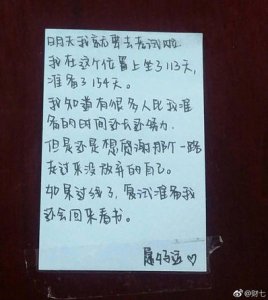 明天我就要去考试啦
我在这个位置上坐了113天，
准备了154天。
我知道有很多人比我准
备的时间还长还努力.
但是还是想感谢那个一路
走过来没放弃的自己。
如果过线了，复试准备我
还会回来看书。
♡
@财七